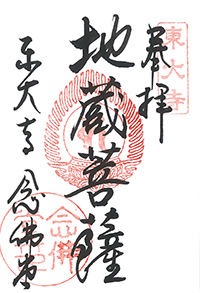 東大寺
奉拝
地蔵菩薩
東大寺 念佛堂